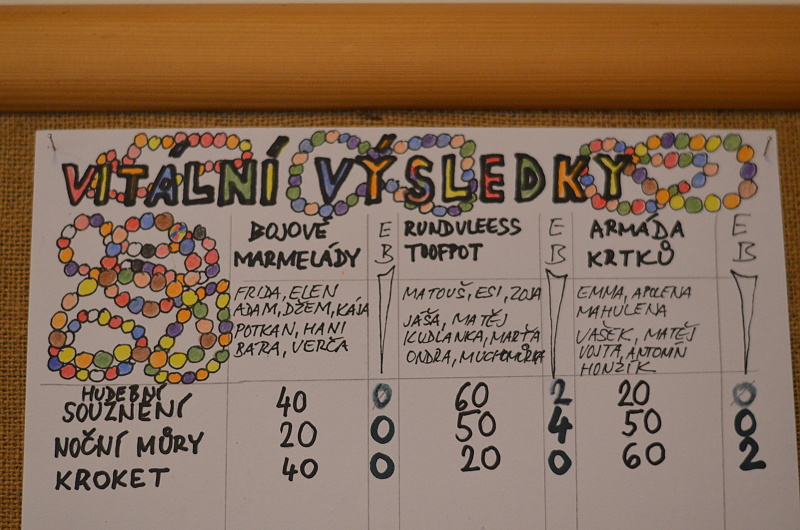 VITÁLNÍ VÝSLEDKY
BOJOVÉ MARMELÁDY
E B
RUNDVLEESS TOOFPOT
E B
ARMÁDA KRTKŮ
E B
FRIDA, ELEN
ADAM, DŽEM, KÁJA
POTKAN, HANI
BÁRA, VERČA
MATOUŠ, ESI, ZOJA
JÁŠA, MATĚJ
KUDLANKA, MARŤA
ONDRA, MUCHOMŮRKA
EMMA, APOLENA
MAHULENA
VAŠEK, MATĚJ
VOJTA, ANTONÍN
HONZÍK
HUDEBNÍ
SOUZNĚNÍ 40 0 60 2 20 0
NOČNÍ MŮRY 20 0 50 4 50 0
KROKET 40 0 20 0 60 2